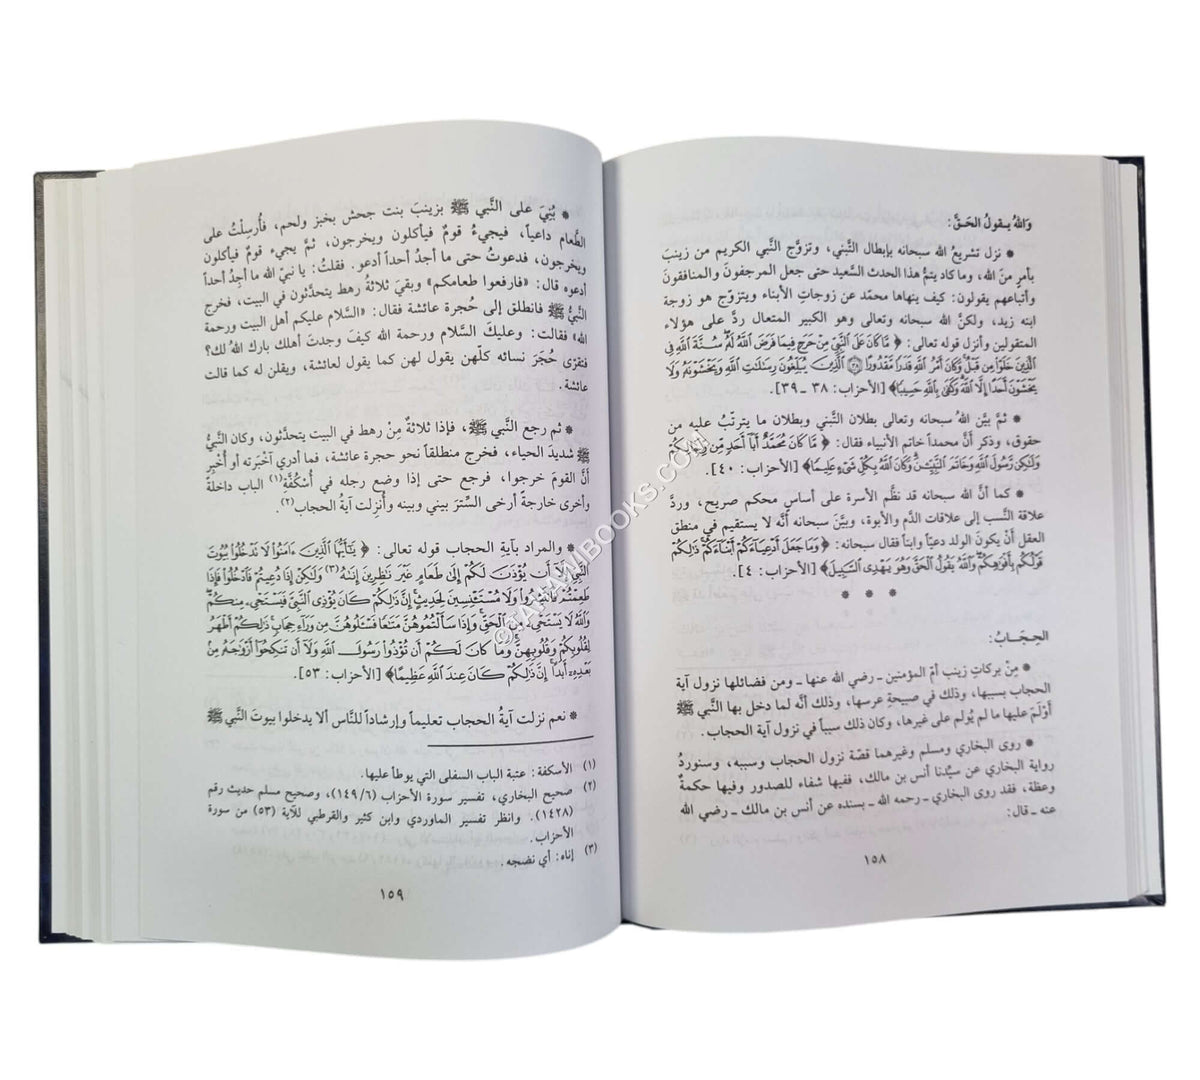 وَاللهُ يـقولُ الحَـقَّ:
* نزل تشريعُ الله سبحانه بإبطال التَّبني، وتزوَّج النَّبي الكريم من زينبَ
بأمرٍ منَ الله، وما كاد يتمُّ هذا الحدث السَّعيد حتى جعل المرجفونَ والمنافقونَ
وأتباعهم يقولون: كيف ينهاها محمّد عن زوجاتِ الأبناء ويتزوَّج هو زوجة
ابنه زيد، ولكنَّ الله سبحانه وتعالى وهو الكبير المتعال ردَّ على هؤلاء
المتقولين وأنزل قوله تعالى: ﴿ مَّا كَانَ عَلَى ٱلنَّبِيِّ مِنْ حَرَجٍ فِيمَا فَرَضَ ٱللَّهُ لَهُۥ سُنَّةَ ٱللَّهِ فِي
ٱلَّذِينَ خَلَوْا۟ مِن قَبْلُ وَكَانَ أَمْرُ ٱللَّهِ قَدَرًا مَّقْدُورًا ﴿٣٨﴾ ٱلَّذِينَ يُبَلِّغُونَ رِسَٰلَٰتِ ٱللَّهِ وَيَخْشَوْنَهُۥ وَلَا
يَخْشَوْنَ أَحَدًا إِلَّا ٱللَّهَ وَكَفَىٰ بِٱللَّهِ حَسِيبًا﴾ [الأحزاب: ٣٨ ـ ٣٩].
* ثمَّ بيَّن اللهُ سبحانه وتعالى بطلان التَّبني وبطلان ما يترتَّبُ عليه من
حقوق، وذكر أنَّ محمداً خاتم الأنبياء فقال: ﴿ مَّا كَانَ مُحَمَّدٌ أَبَآ أَحَدٍ مِّن رِّجَالِكُمْ
وَلَٰكِن رَّسُولَ ٱللَّهِ وَخَاتَمَ ٱلنَّبِيِّـۧنَ وَكَانَ ٱللَّهُ بِكُلِّ شَىْءٍ عَلِيمًا﴾ [الأحزاب: ٤٠].
* كما أنَّ الله سبحانه قد نظَّم الأسرة على أساسٍ محكم صريح، وردَّ
علاقة النَّسب إلى علاقات الدَّم والأبوة، وبيَّن سبحانه أنَّه لا يستقيم في منطق
العقل أنْ يكونَ الولد دعيّاً وابناً فقال سبحانه: ﴿وَمَا جَعَلَ أَدْعِيَآءَكُمْ أَبْنَآءَكُمْ ذَٰلِكُمْ
قَوْلُكُم بِأَفْوَٰهِكُمْ وَٱللَّهُ يَقُولُ ٱلْحَقَّ وَهُوَ يَهْدِى ٱلسَّبِيلَ﴾ [الأحزاب: ٤].
* * *
الحِـجَـابُ:
* مِنْ بركاتِ زينب أمّ المؤمنين ـ رضي الله عنها ـ ومن فضائلها نزول آية
الحجاب بسببها، وذلك في صبيحةِ عرسها، وذلك أنَّه لما دخل بها النَّبي ﷺ
أَوْلَمَ عليها ما لم يُولم على غيرها، وكان ذلك سبباً في نزول آية الحجاب.
* روى البخاري ومسلم وغيرهما قصّة نزول الحجاب وسببه، وسنوردُ
رواية البخاري عن سيِّدنا أنس بن مالك، ففيها شفاء للصدور وفيها حكمةٌ
وعظة، فقد روى البخاري ـ رحمه الله ـ بسنده عن أنس بن مالك ـ رضي الله
عنه ـ قال:
١٥٨
* بُنِيَ على النَّبي ﷺ بزينبَ بنت جحش بخبز ولحم، فأُرسِلْتُ على
الطَّعام داعياً، فيجيءُ قومٌ فيأكلون ويخرجون، ثمَّ يجيء قومٌ فيأكلون
ويخرجون، فدعوتُ حتى ما أجدُ أحداً أدعو. فقلتُ: يا نبيّ الله ما أجدُ أحداً
أدعوه قال: «فارفعوا طعامكم» وبقيَ ثلاثةُ رهط يتحدَّثون في البيت، فخرج
النَّبيُّ ﷺ فانطلق إلى حُجرة عائشة فقال: «السَّلام عليكم أهل البيت ورحمة
الله» فقالت: وعليكَ السَّلام ورحمة الله كيفَ وجدتَ أهلك بارك اللهُ لك؟
فتقرَّى حُجَرَ نسائه كلّهن يقول لهن كما يقول لعائشة، ويقلن له كما قالت
عائشة.
* ثم رجع النَّبي ﷺ، فإذا ثلاثةٌ مِنْ رهط في البيت يتحدَّثون، وكان النَّبيُّ
ﷺ شديدَ الحياء، فخرج منطلقاً نحو حجرة عائشة، فما أدري آخبَرته أو أُخْبِر
أنَّ القومَ خرجوا، فرجع حتى إذا وضع رجله في أُسْكُفَّةِ(١) الباب داخلةً
وأخرى خارجةً أرخى السِّترَ بيني وبينه وأُنزِلت آيةُ الحجاب(٢).
* والمراد بآيةِ الحجاب قوله تعالى: ﴿ يَٰٓأَيُّهَا ٱلَّذِينَ ءَامَنُوا۟ لَا تَدْخُلُوا۟ بُيُوتَ
ٱلنَّبِيِّ إِلَّآ أَن يُؤْذَنَ لَكُمْ إِلَىٰ طَعَامٍ غَيْرَ نَٰظِرِينَ إِنَىٰهُ(٣) وَلَٰكِنْ إِذَا دُعِيتُمْ فَٱدْخُلُوا۟ فَإِذَا
طَعِمْتُمْ فَٱنتَشِرُوا۟ وَلَا مُسْتَـْٔنِسِينَ لِحَدِيثٍ إِنَّ ذَٰلِكُمْ كَانَ يُؤْذِى ٱلنَّبِىَّ فَيَسْتَحْىِۦ مِنكُمْ
وَٱللَّهُ لَا يَسْتَحْىِۦ مِنَ ٱلْحَقِّ وَإِذَا سَأَلْتُمُوهُنَّ مَتَٰعًا فَسْـَٔلُوهُنَّ مِن وَرَآءِ حِجَابٍ ذَٰلِكُمْ أَطْهَرُ
لِقُلُوبِكُمْ وَقُلُوبِهِنَّ وَمَا كَانَ لَكُمْ أَن تُؤْذُوا۟ رَسُولَ ٱللَّهِ وَلَآ أَن تَنكِحُوٓا۟ أَزْوَٰجَهُۥ مِنۢ
بَعْدِهِۦٓ أَبَدًا إِنَّ ذَٰلِكُمْ كَانَ عِندَ ٱللَّهِ عَظِيمًا﴾ [الأحزاب: ٥٣].
* نعم نزلت آيةُ الحجاب تعليماً وإرشاداً للنَّاس ألا يدخلوا بيوتَ النَّبيِّ ﷺ
(١) الأسكفة: عتبة الباب السفلى التي يوطأ عليها.
(٢) صحيح البخاري، تفسير سورة الأحزاب (١٤٩/٦)، وصحيح مسلم حديث رقم
(١٤٢٨). وانظر تفسير الماوردي وابن كثير والقرطبي للآية (٥٣) من سورة
الأحزاب.
(٣) إناه: أي نضجه.
١٥٩